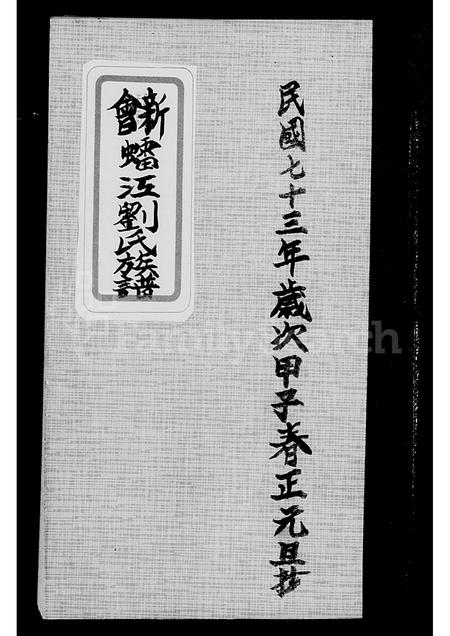 民國七十三年歲次甲子春正元旦抄
新會蟠江劉氏族譜
FamilySearch